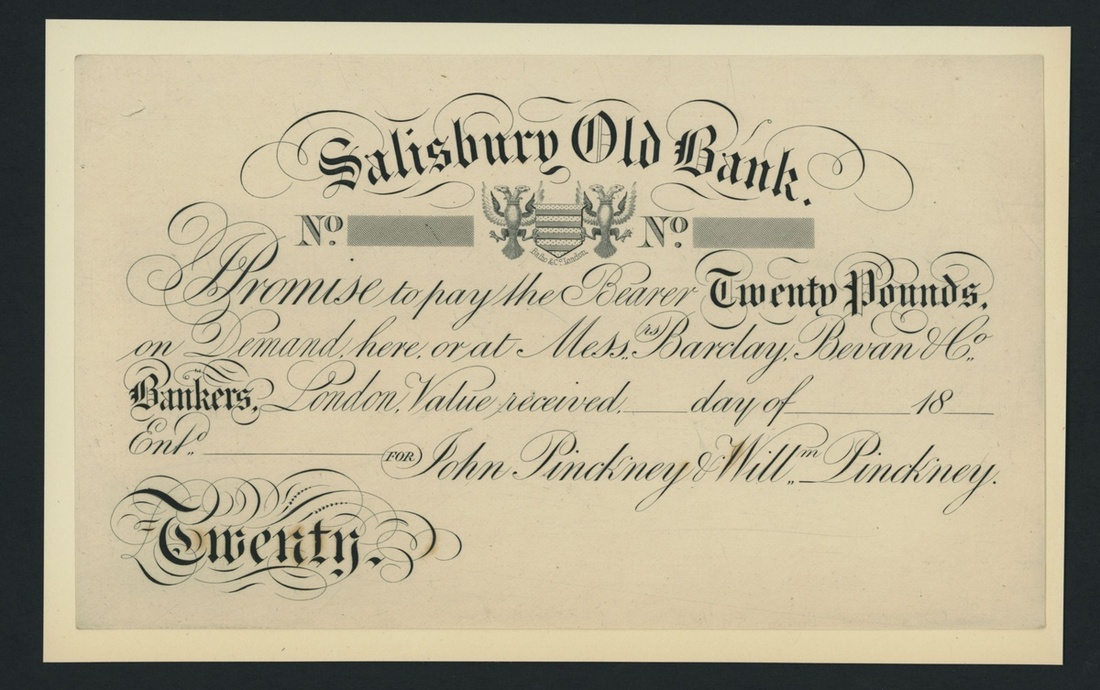 Salisbury Old Bank.
No. No.
I Promise to pay the Bearer Twenty Pounds,
on Demand, here, or at Mess.rs Barclay, Bevan & Co.
Bankers, London, Value received, ___ day of ___ 18 __
Ent.d ___ FOR John Pinckney & Will.m Pinckney.
Twenty.